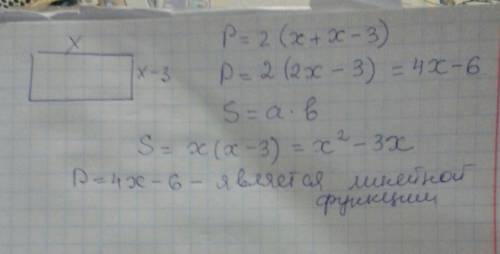 x
x-3
P = 2 (x + x - 3)
P = 2 (2x - 3) = 4x - 6
S = a · b
S = x (x - 3) = x² - 3x
P = 4x - 6 - является линейной
функции